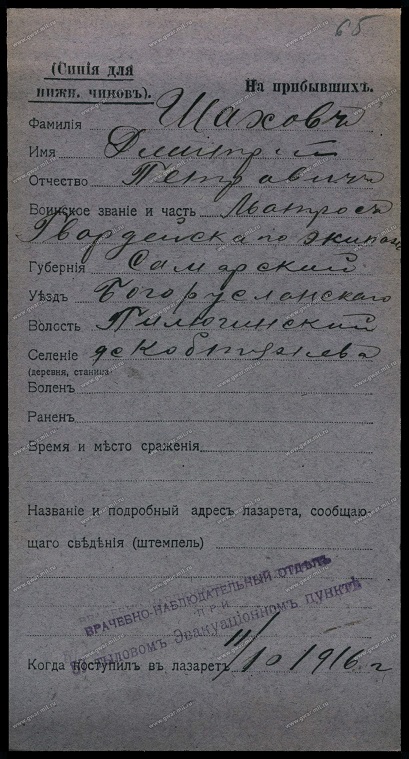 65
(Синія для
нижн. чиновъ).
На прибывшихъ.
Фамилія Шаховъ
Имя Дмитрій
Отчество Петровичъ
Воинское званіе и часть Матросъ
Гвардейскаго экипаж
Губернія Самарской
Уѣздъ Богорусланскаго
Волость Пилюгинской
Селеніе дс Кобтяшева
(деревня, станица
Боленъ
Раненъ
Время и мѣсто сраженія
Названіе и подробный адресъ лазарета, сообщаю-
щаго свѣдѣнія (штемпель)
ВРАЧЕБНО-НАБЛЮДАТЕЛЬНЫЙ ОТДѢЛЪ
ПРИ
тыловомъ Эвакуаціонномъ пунктѣ
Когда поступилъ въ лазаретъ 11/10 1916 г